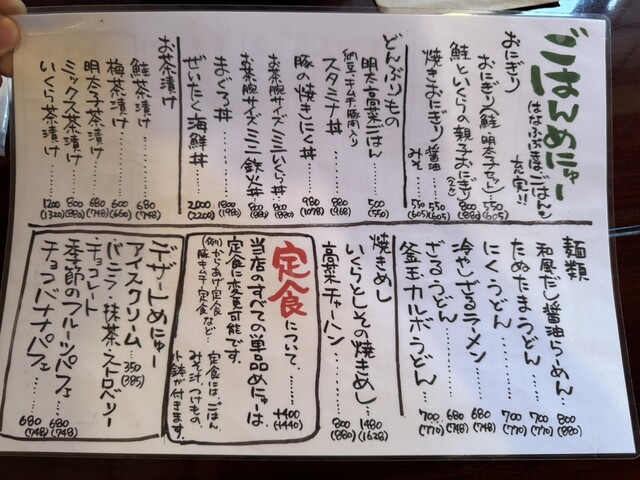 ごはんめにゅー
(はなぶさはごはんも充実!!)
おにぎり
おにぎり(鮭・明太子セット) 550 (605)
鮭といくらの親子おにぎり(2コ) 800 (880)
焼きおにぎり 醤油 550 (605)
みそ 550 (605)
どんぶりもの
明太高菜ごはん 500 (550)
納豆・キムチ・豚肉入り
スタミナ丼 880 (968)
豚の焼きにく丼 980 (1078)
お茶碗サイズ ミニいくら丼 800 (880)
お茶碗サイズ ミニ鉄火丼 800 (880)
まぐろ丼 1800 (1980)
ぜいたく海鮮丼 2,000 (2200)
お茶漬け
鮭茶漬け 680 (748)
梅茶漬け 600 (660)
明太子茶漬け 680 (748)
ミックス茶漬け 800 (880)
いくら茶漬け 1200 (1320)
麺類
和風だし醤油らーめん 800 (880)
ためたまうどん 700 (770)
にくうどん 700 (770)
冷やしざるラーメン 680 (748)
ざるうどん 680 (748)
釜玉カルボうどん 700 (770)
焼きめし
いくらとしその焼きめし 1480 (1628)
高菜チャーハン 800 (880)
定食について
当店のすべての単品めにゅーは
定食に変更可能です。 +400 (+440)
(例)からあげ定食
豚キムチ定食など…
定食には、ごはん、
みそ汁、つけもの、
小鉢が付きます。
デザートめにゅー
アイスクリーム 350 (385)
バニラ・抹茶・ストロベリー
・チョコレート
季節のフルーツパフェ 680 (748)
チョコバナナパフェ 680 (748)